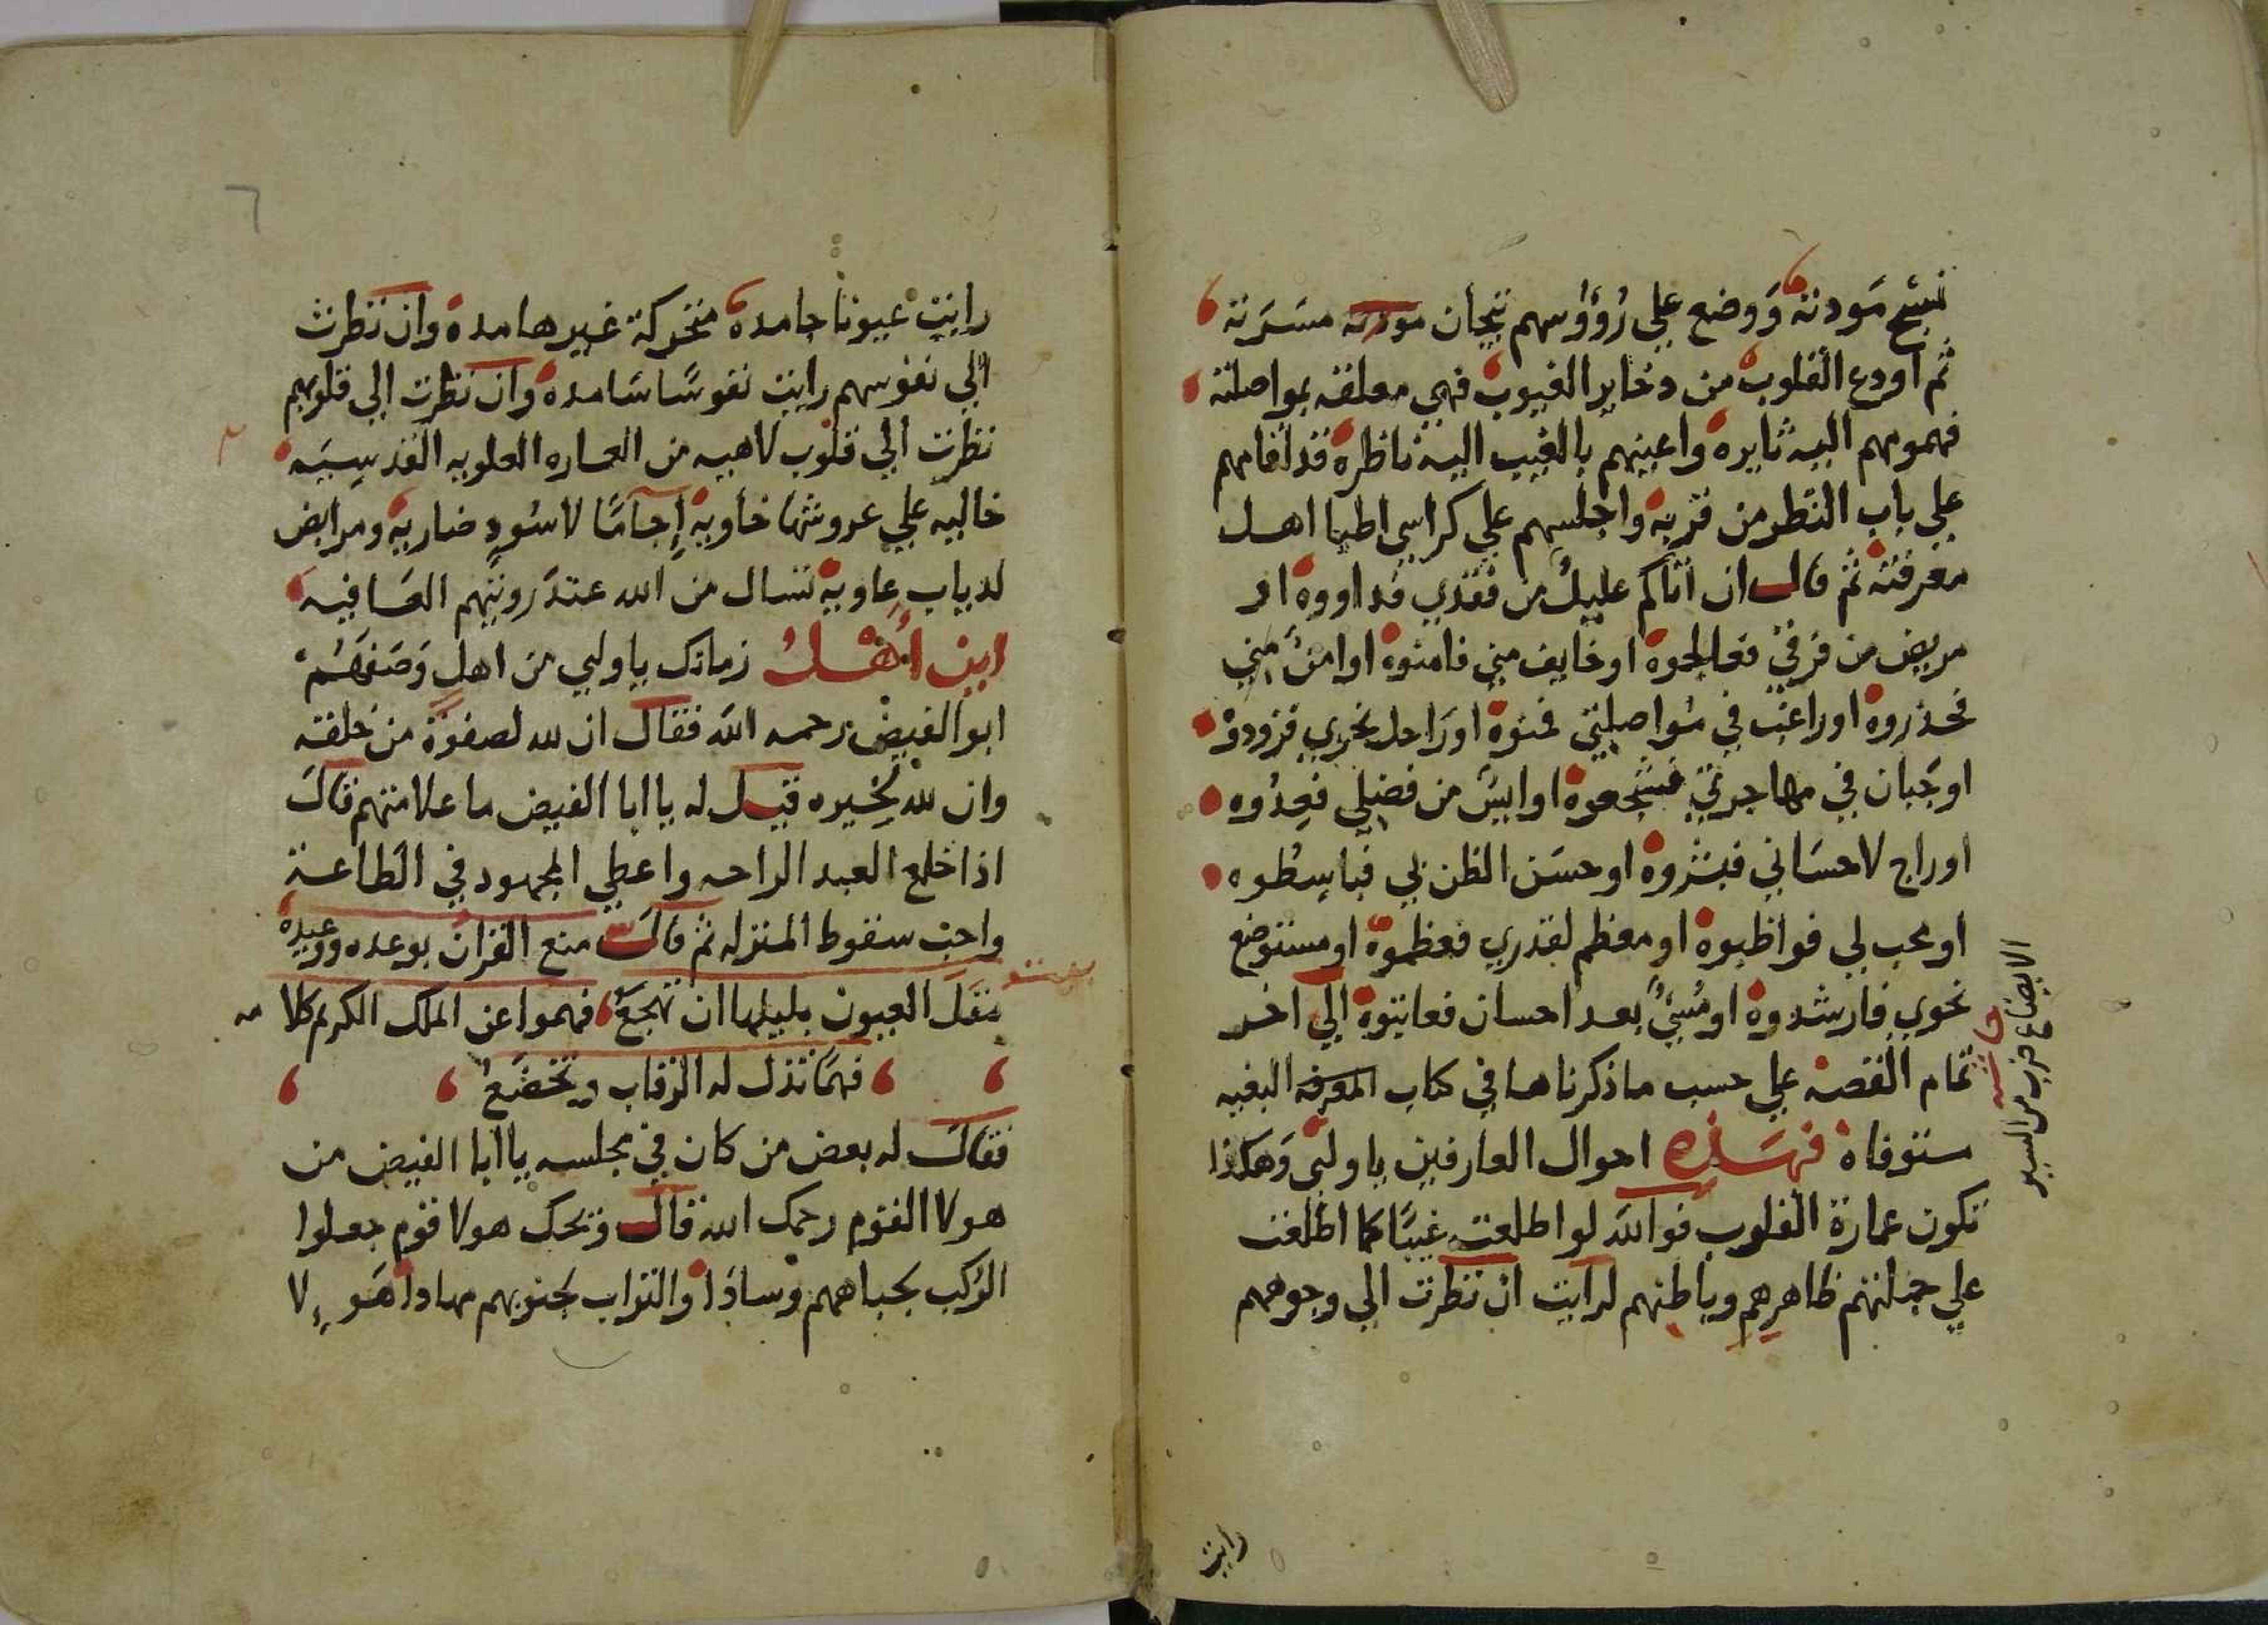 نسيم مودته ووضع علي رؤوسهم تيجان مودته مسرته
ثم اودع القلوب من دخاير الغيوب فهي معلقه بمواصلته
فهمومهم اليه ثايره واعينهم بالغيب اليه ناظرة قد اقامهم
علي باب النظر من قربه واجلسهم علي كراسي اطبا اهل
معرفته ثم قال ان اتاكم عليل من فقدي فداووه او
مريض من فرقي فعالجوه او خايف مني فامنوه او امن مني
فحذروه او راغب في مواصلتي فمنوه او راحل نحوي فزودوه
او جبان في مهاجرتي فشجعوه او ايس من فضلي فعدوه
او راج لاحساني فبشروه او حسن الظن بي فباسطوه
او محب لي فواظبوه او معظم لقدري فعظموه او مستوضح
نحوي فارشدوه او مسي بعد احسان فعاتبوه الي اخر
تمام القصه علي حسب ما ذكرناها في كتاب المعرفه البغيه
ستوفاة فهذه احوال العارفين يا ولي وهكذا
تكون عمارة القلوب فوالله لو اطلعت غيبا كما اطلعت
علي جملتهم ظاهرهم وباطنهم لرايت ان نظرت الي وجوههم
الايضاع ضرب من السير
رايت
٦
رايت عيونا جامدة متحركة غير هامدة وان نظرت
الي نفوسهم رايت نفوسا شامده وان نظرت الي قلوبهم
نظرت الي قلوب لاهيه من العماره العلويه القدسيه
خاليه علي عروشها خاويه اجاما لاسود ضاريه ومرابض
لدياب عاويه تسال من الله عند رويتهم العافيه
اين اهل زمانك يا ولي من اهل وصفهم
ابو الفيض رحمه الله فقال ان لله لصفوة من خلقه
وان لله لخيره قيل له يا ابا الفيض ما علامتهم قال
اذا خلع العبد الراحه واعطي المجهود في الطاعة
واحب سقوط المنزله ثم قال منع القران بوعده ووعيده
مقل العيون بليلها ان تهجع فهموا عن الملك الكريم كلامه
فهما تذل له الرقاب وتخضع
فقال له بعض من كان في مجلسه يا ابا الفيض من
هولا القوم رحمك الله قال ويحك هولا قوم جعلوا
الركب لجباههم وسادا والتراب لجنوبهم مهادا هولا